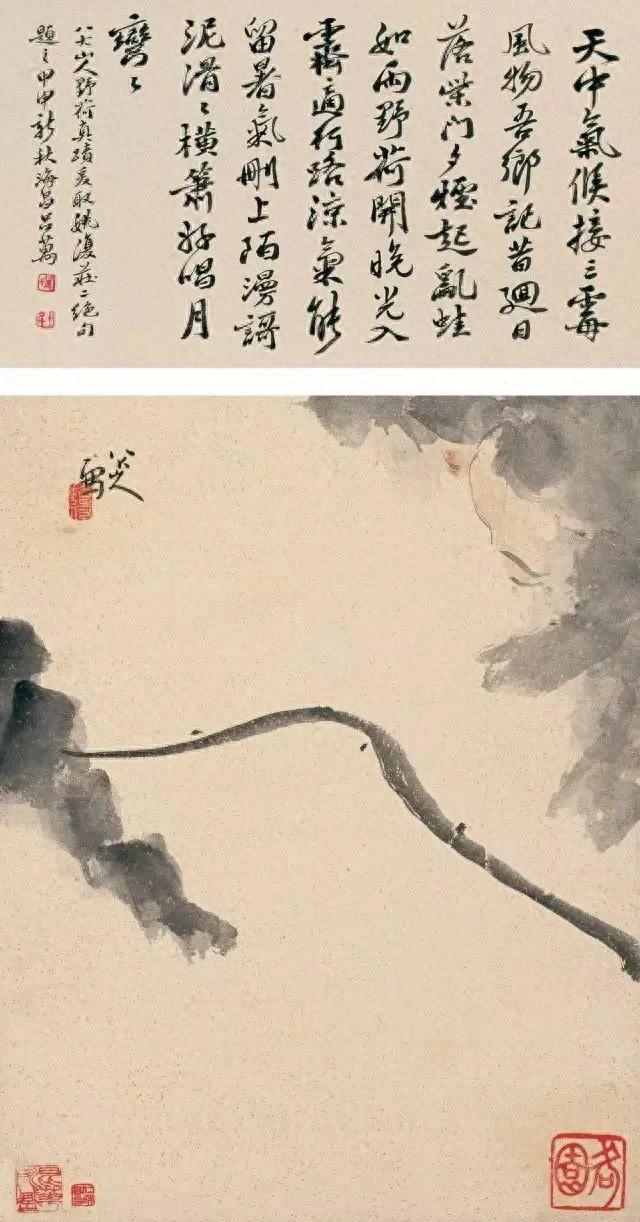 天中氣候接三霉
風物吾鄉記昔迴日
落柴門夕煙起亂蛙
如雨野荷開晚光入
霽適行路涼氣能
留暑氣刪上陌漫謌
泥滑〻橫簫好唱月
彎〻
八大山人野荷真蹟爰取姚復莊二絕句
題之甲申新秋海昌呂萬
八大
寫